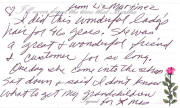 from Liz Martinez
I did this wonderful lady's
hair for 46 years. She was
a great & wonderful friend
& Customer for so long.
One day she come into the shop
Sat down & said I don't know
what to get my grandchildren
for X mas